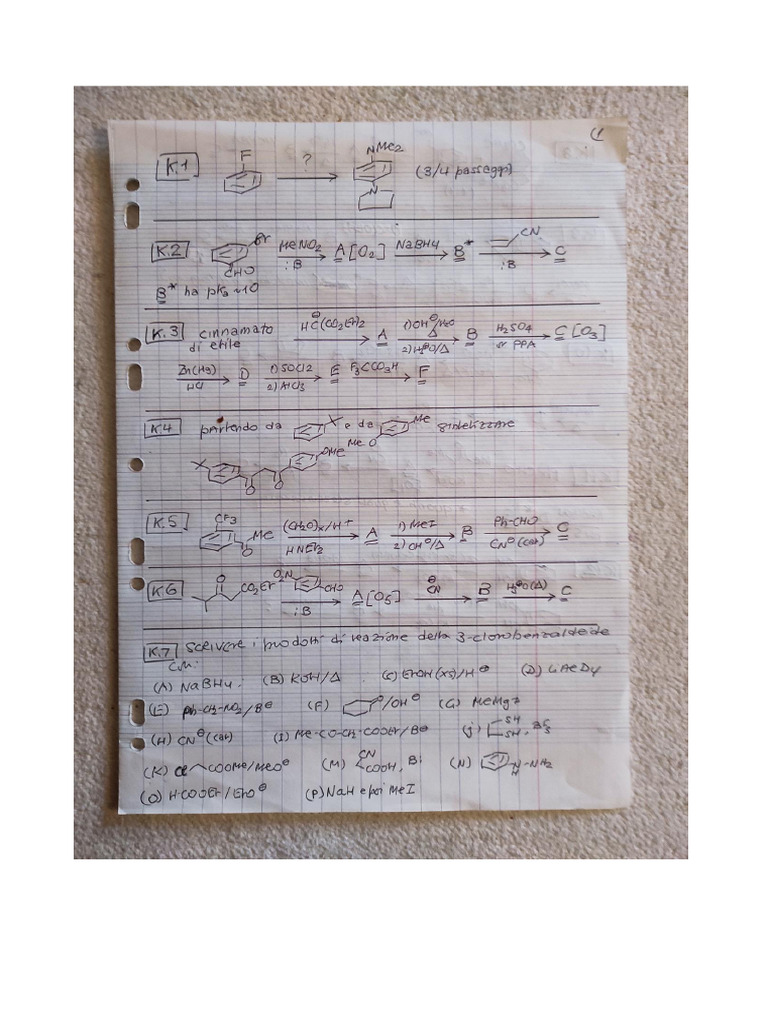 (1
K.1 F ? NMe2 N (3/4 passaggi)
K.2 Br CHO MeNO2 :B A [O2] NaBH4 B* CN :B C
B* ha pKa ~10
K.3 cinnamato di etile HC⊖(CO2Et)2 A 1) OH⊖/H2O Δ 2) H3⊕O/Δ B H2SO4 or PPA C [O3]
Zn(Hg) HCl D 1) SOCl2 2) AlCl3 E F3CCO3H F
K.4 partendo da e da Me MeO sintetizzare
OMe O O
K.5 CF3 Me O (CH2O)x/H+ HNEt2 A 1) MeI 2) OH⊖/Δ B Ph-CHO CN⊖(cat) C
K.6 O CO2Et O2N CHO :B A [O5] ⊖CN B H3⊕O(Δ) C
K.7 Scrivere i prodotti di reazione della 3-clorobenzaldeide
con:
(A) NaBH4 (B) KOH/Δ (C) EtOH (xs)/H⊕ (D) LiAlD4
(E) Ph-CH2-NO2/B⊖ (F) O/OH⊖ (G) MeMgI
(H) CN⊖(cat) (I) Me-CO-CH2-COOEt/B⊖ (J) SH SH, BF3
(K) Cl COOMe/MeO⊖ (M) CN COOH, B: (N) N-NH2 H
(O) H-COOEt/EtO⊖ (P) NaH e poi MeI